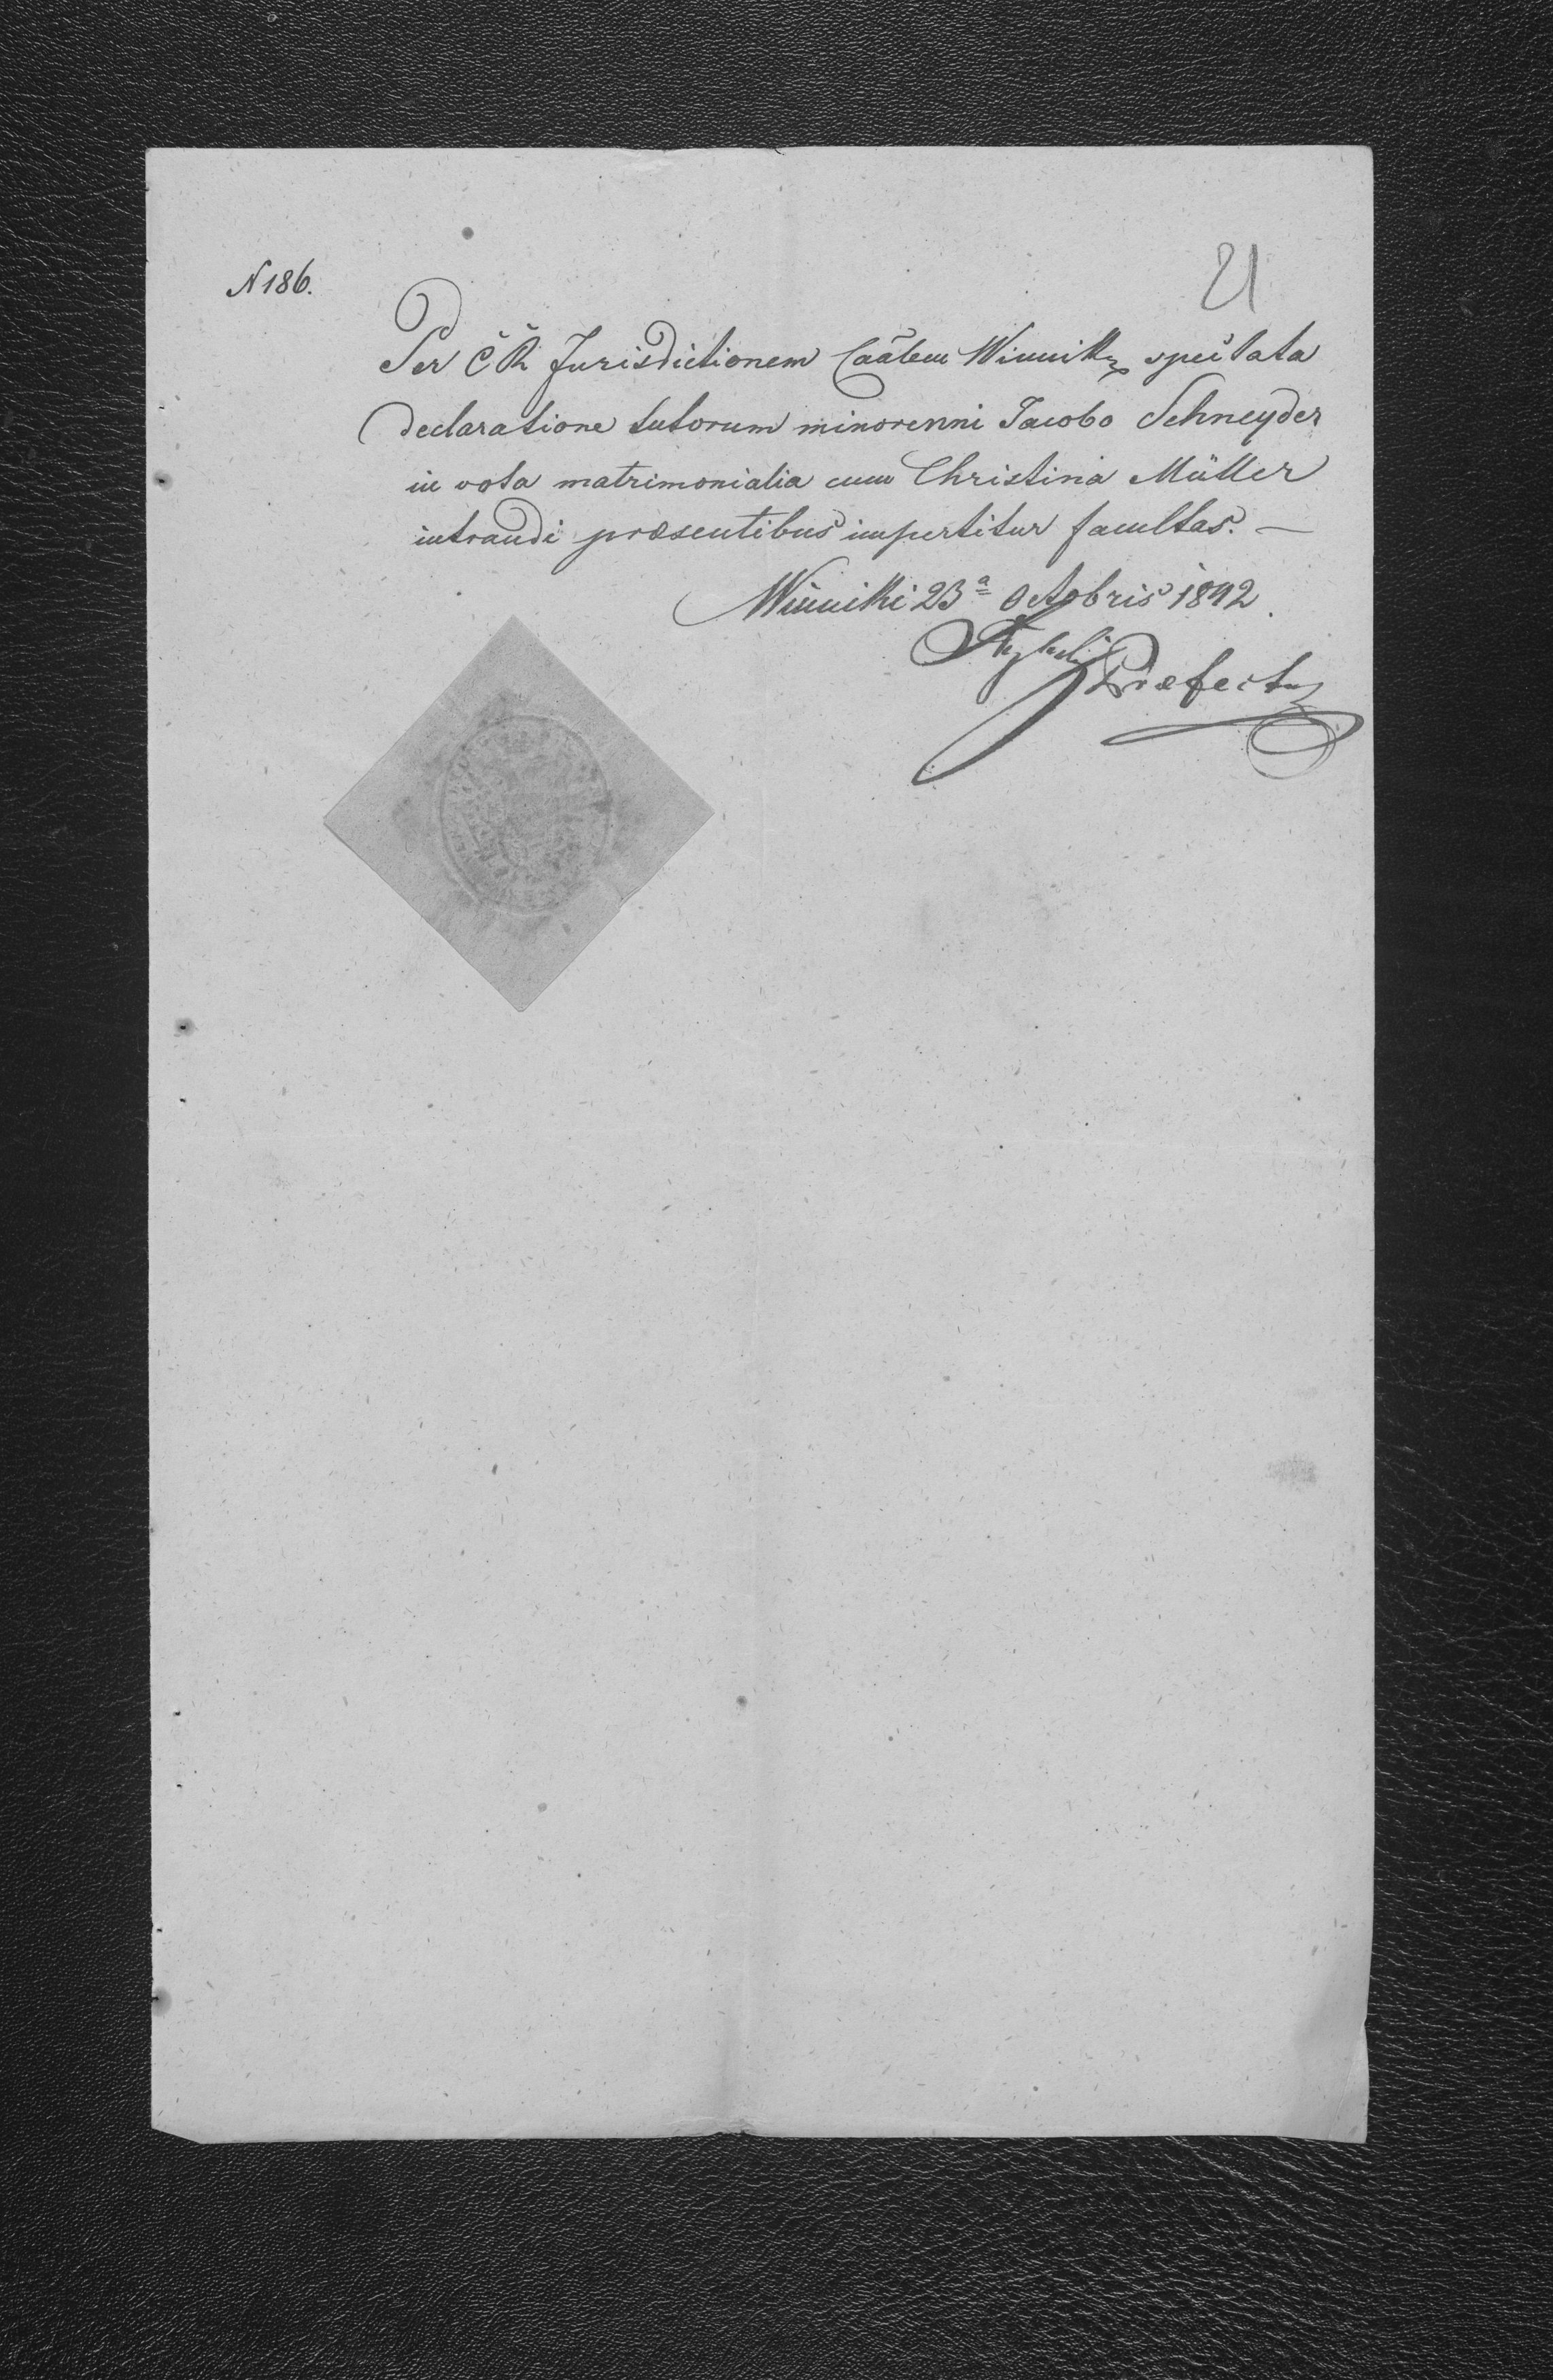 N 186.
21
Per C̃ R̃ Jurisdictionem Caãlem Winnik spectata
declaratione tutorum minorenni Jacobo Schneyder
in vota matrimonialia cum Christina Müller
intrandi præsentibus impertitur facultas. —
Winniki 23ª Octobris 1842
Præfectus